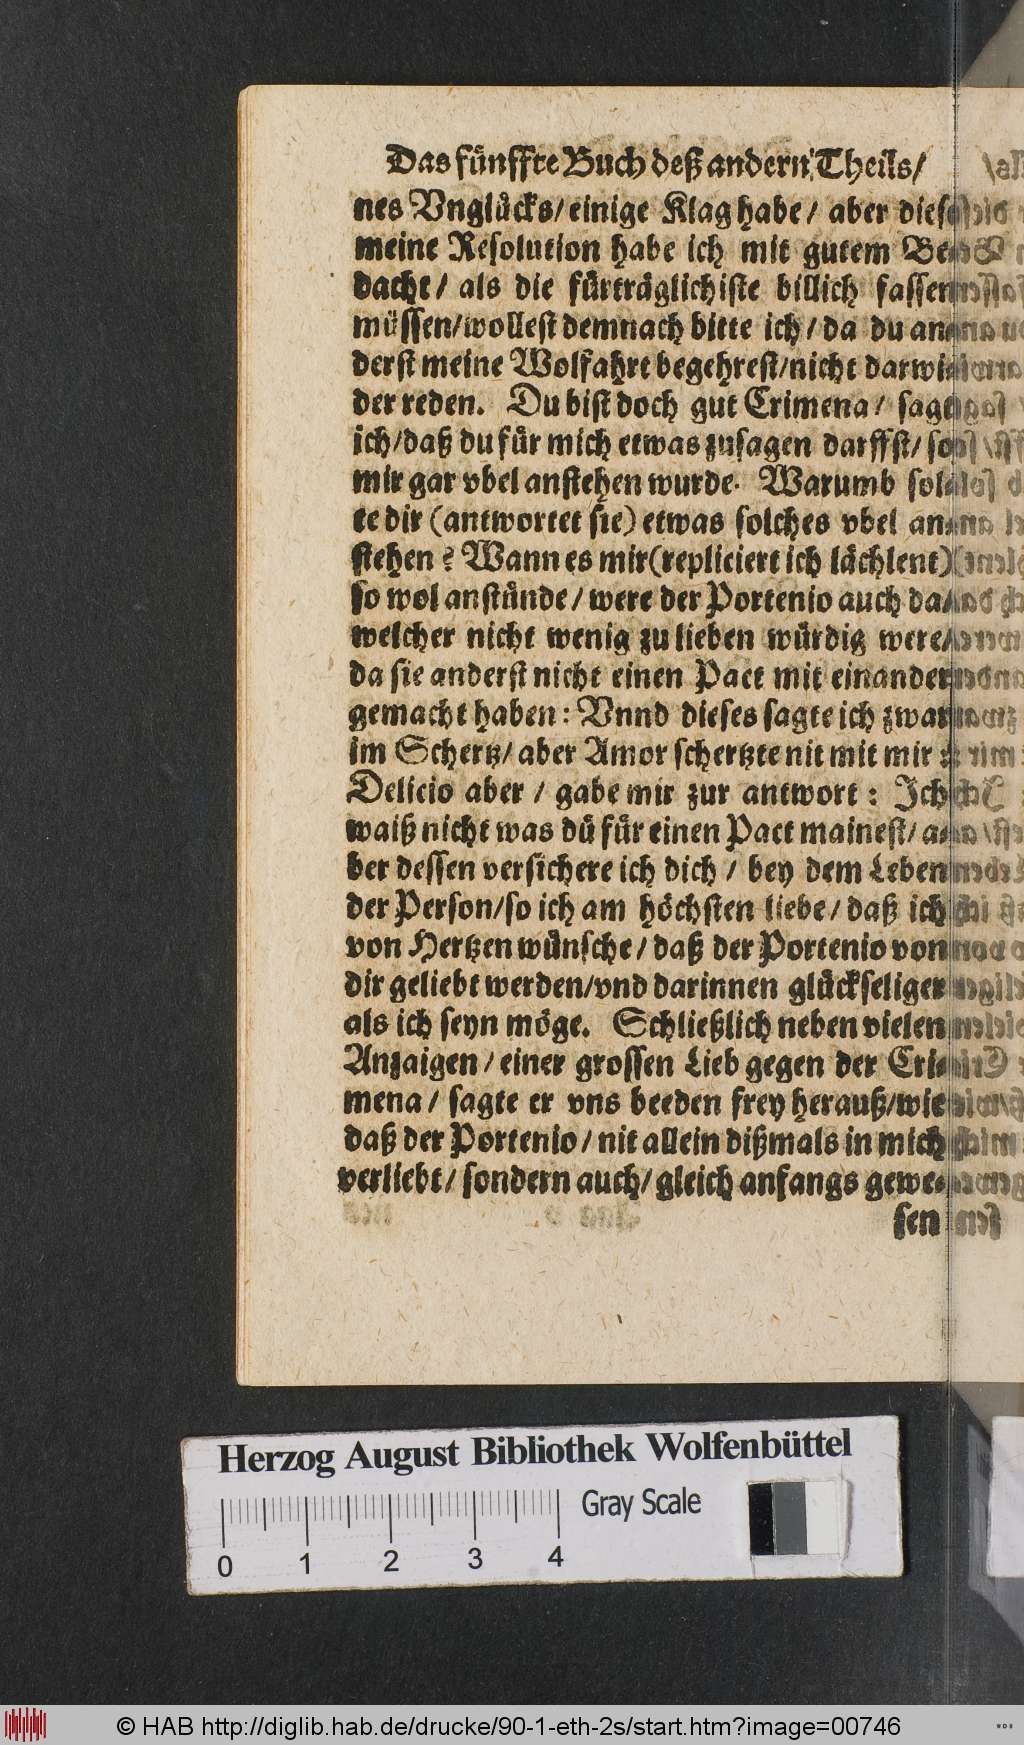 Das fünffte Buch deß andern Theils/
nes Vnglücks/einige Klag habe/ aber diese
meine Resolution habe ich mit gutem Be-
dacht/ als die fürträglichiste billich fassen
müssen/wollest demnach bitte ich/ da du an-
derst meine Wolfahrt begehrest/nicht darwi-
der reden. Du bist doch gut Crimena/ sagt
ich/daß du für mich etwas zusagen darffst/ so
mir gar vbel anstehen wurde. Warumb sol-
te dir (antwortet sie) etwas solches vbel an-
stehen? Wann es mir(repliciert ich lächlent)
so wol anstünde/ were der Portenio auch da/
welcher nicht wenig zu lieben würdig were/
da sie anderst nicht einen Pact mit einander
gemacht haben: Vnnd dieses sagte ich zwar
im Schertz/ aber Amor schertzte nit mit mir
Delicio aber / gabe mir zur antwort: Ich
waiß nicht was dü für einen Pact mainest/ a-
ber dessen versichere ich dich / bey dem Leben
der Person/so ich am höchsten liebe/ daß ich
von Hertzen wünsche/ daß der Portenio von
dir geliebt werden/vnd darinnen glückseliger
als ich seyn möge. Schließlich neben vielen
Anzaigen/ einer grossen Lieb gegen der Cri-
mena/ sagte er vns beeden frey herauß/wie
daß der Portenio/ nit allein dißmals in mich
verliebt/ sondern auch/ gleich anfangs gewe-
sen
Herzog August Bibliothek Wolfenbüttel
Gray Scale
0 1 2 3 4
© HAB http://diglib.hab.de/drucke/90-1-eth-2s/start.htm?image=00746